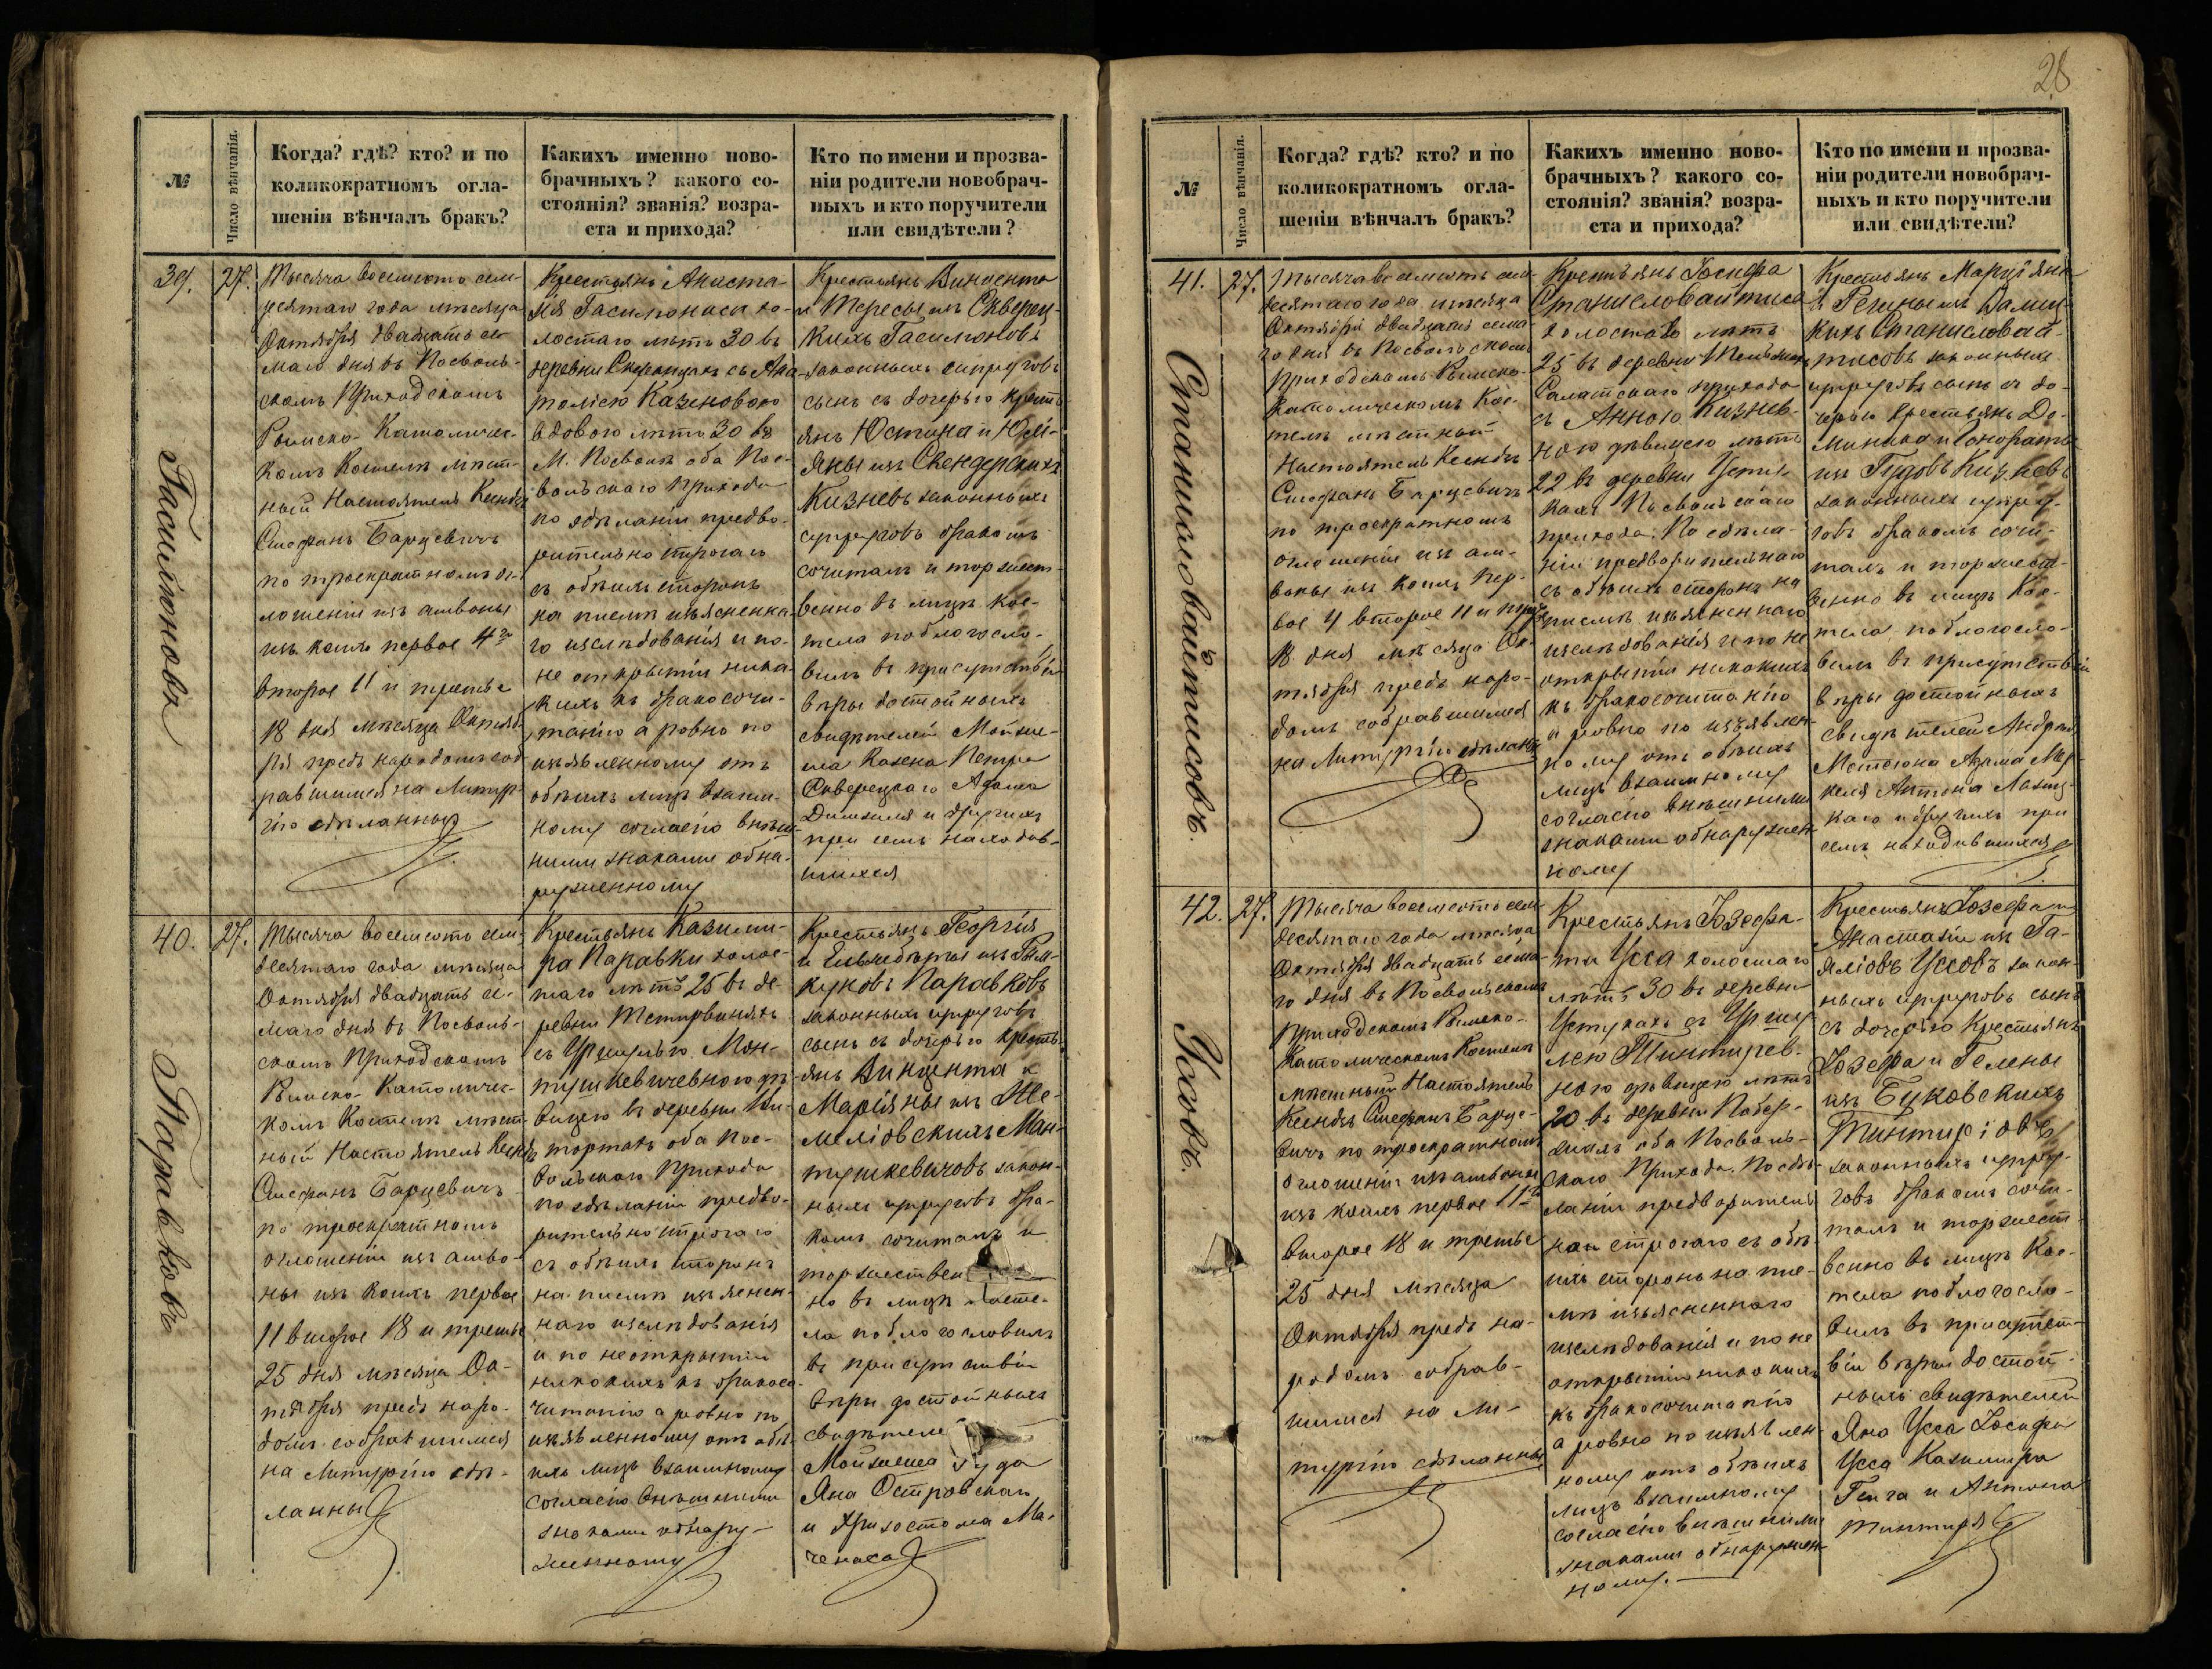 28
№
Число вѣнчанія.
Когда? гдѣ? кто? и по
коликократномъ огла-
шеніи вѣнчалъ бракъ?
Какихъ именно ново-
брачныхъ? какого со-
стоянія? званія? возра-
ста и прихода?
Кто по имени и прозва-
ніи родители новобрач-
ныхъ и кто поручители
или свидѣтели?
39.
27.
Гасилюновъ
Тысяча восемьсотъ семи-
десятаго года мѣсяца
Октября двадцать се-
маго дня въ Посволь-
скомъ Приходскомъ
Римско-Католичес-
комъ Костелѣ мѣст-
ный Настоятель Ксендзъ
Стефанъ Барцевичъ
по троекратномъ ог-
лошеніи изъ амвоны
изъ коихъ первое 4го
второе 11 и третье
18 дня мѣсяца Октяб-
ря предъ народомъ соб-
равшимся на Литур-
гію сдѣланныхъ
Крестьянъ Анаста-
зія Гасилюнаса хо-
лостаго лѣтъ 30 въ
деревни съ Ана-
толіею Казеновою
вдовою лѣтъ 30 въ
М. Посволѣ оба Пос-
вольскаго Прихода
по сдѣланіи предва-
рительно строгаго
съ обѣихъ сторонъ
на писмѣ изъясненна-
го изслѣдованія и по-
не открытіи ника-
кихъ къ бракосочи-
танію а ровно по
изявленному отъ
обѣихъ лицъ взаим-
ному согласію внѣш-
ними знаками обна-
руженному
Крестьянъ Винцента
и Тересы изъ Скверец-
кихъ Гасилюновъ
законныхъ супруговъ
сынъ съ дочерью Кресть-
янъ Юстина и Юлі-
яны изъ Свендерскихъ
Кизневъ законныхъ
супруговъ бракомъ
сочиталъ и торжест-
венно въ лицѣ Кос-
тела поблагосло-
вилъ въ присутствіи
вѣры достойныхъ
свидѣтелей Мойже-
ша Казена Петра
Скверецкаго Адама
и другихъ
при семъ находив-
шихся
40.
27.
Паравковъ
Тысяча восемьсотъ семи-
десятаго года мѣсяца
Октября двадцать се-
маго дня въ Посволь-
скомъ Приходскомъ
Римско-Католичес-
комъ Костелѣ мѣст-
ный Настоятель Ксендзъ
Стефанъ Барцевичъ
по троекратномъ
оглошеніи изъ амво-
ны изъ коихъ первое
11 второе 18 и третье
25 дня мѣсяца Ок-
тября предъ наро-
домъ собравшимся
на Литургію сдѣ-
ланныхъ
Крестьянъ Казими-
ра Паравки холос-
таго лѣтъ 25 въ де-
ревни Тетирвиняхъ
съ Уршулею Ман-
тушкевичевною дѣ-
вицею въ деревни
оба Пос-
вольскаго Прихода
по сдѣланіи предва-
рительно строгаго
съ обѣихъ сторонъ
на писмѣ изъяснен-
наго изслѣдованія
и по неоткрытіи
никакихъ къ бракосо-
читанію а ровно по
изявленному отъ обѣ-
ихъ лицъ взаимному
согласію внѣшними
знаками обнару-
женному
Крестьянъ Георгія
и Ельжбѣты изъ
Паравковъ
законныхъ супруговъ
сынъ съ дочерью Кресть-
янъ Винцента и
Маріяны изъ Же-
меліовскихъ Ман-
тушкевичовъ закон-
ныхъ супруговъ бра-
комъ сочиталъ и
торжествен
но въ лицѣ Косте-
ла поблагословилъ
въ присутствіи
вѣры достойныхъ
свидѣтеле
Мойжеша Гуда
Яна Островскаго
и Хризостома Ма-
ченаса
№
Число вѣнчанія.
Когда? гдѣ? кто? и по
коликократномъ огла-
шеніи вѣнчалъ бракъ?
Какихъ именно ново-
брачныхъ? какого со-
стоянія? званія? возра-
ста и прихода?
Кто по имени и прозва-
ніи родители новобрач-
ныхъ и кто поручители
или свидѣтели?
41.
27.
Станисловайтисовъ.
Тысяча восемьсотъ семи-
десятаго года мѣсяца
Октября двадцать сема-
го дня въ Посвольскомъ
Приходскомъ Римско-
Католическомъ Кос-
телѣ мѣстный
Настоятель Ксендзъ
Стефанъ Барцевичъ
по троекратномъ
оглошеніи изъ ам-
воны изъ коихъ пер-
вое 4 второе 11 и третье
18 дня мѣсяца Ок-
тября предъ наро-
домъ собравшимся
на Литургію сдѣланныхъ
Крестьянъ Іосифа
Станисловайтиса
холостаго лѣтъ
25 въ деревни
Салатскаго прихода
съ Анною Кизнев-
ною дѣвицею лѣтъ
22 въ деревни Усту-
кахъ Посвольскаго
прихода. По сдѣла-
ніи предворительнаго
съ обѣихъ сторонъ на
писмѣ изъясненнаго
изслѣдованія и по не
открытіи никакихъ
къ бракосочитанію
а ровно по изъявлен-
ному отъ обѣихъ
лицъ взаимному
согласію внѣшними
знаками обнаружен-
ному
Крестьянъ Марціяна
и Регины изъ
Станисловай-
тисовъ законныхъ
супруговъ сынъ съ до-
черью Крестьянъ До-
миника и Гонораты
изъ Гудовъ Кизневъ
законныхъ супру-
говъ бракомъ сочи-
талъ и торжест-
венно въ лицѣ Кос-
тела поблагосло-
вилъ въ присутствіи
вѣры достойныхъ
свидѣтелей Андрея
Адама Мер-
келя Антона
каго и другихъ при
семъ находившихся
42.
27.
Усовъ.
Тысяча восемьсотъ семи-
десятаго года мѣсяца
Октября двадцать сема-
го дня въ Посвольскомъ
Приходскомъ Римско-
Католическомъ Костелѣ
мѣстный Настоятель
Ксендзъ Стефанъ Барце-
вичъ по троекратномъ
оглошеніи изъ амвоны
изъ коихъ первое 11го
второе 18 и третье
25 дня мѣсяца
Октября предъ на-
родомъ собрав-
шимся на Ли-
тургію сдѣланныхъ
Крестьянъ Юзефа-
та Усса холостаго
лѣтъ 30 въ деревни
Устукахъ съ Уршу-
лею Тинтирев-
ною дѣвицею лѣтъ
20 въ деревни
оба Посволь-
скаго Прихода. По сдѣ-
ланіи предворитель-
наи строгаго съ обѣ-
ихъ сторонъ на пис-
мѣ изъясненнаго
изслѣдованія и по не
открытіи никакихъ
къ бракосочитанію
а ровно по изъявлен-
ному отъ обѣихъ
лицъ взаимному
согласію внѣшними
знаками обнаружен-
ному.
Крестьянъ Юзефа и
Анастазіи изъ Га-
яліовъ Уссовъ закон-
ныхъ супруговъ сынъ
съ дочерью Крестьянъ
Юзефа и Гелены
изъ Буковскихъ
Тинтиріовъ
законныхъ супру-
говъ бракомъ сочи-
талъ и торжест-
венно въ лицѣ Кос-
тела поблагосло-
вилъ въ присутст-
віи вѣры достой-
ныхъ свидѣтелей
Яна Усса Іосифа
Усса Казимира
и Антона
Тинтиря